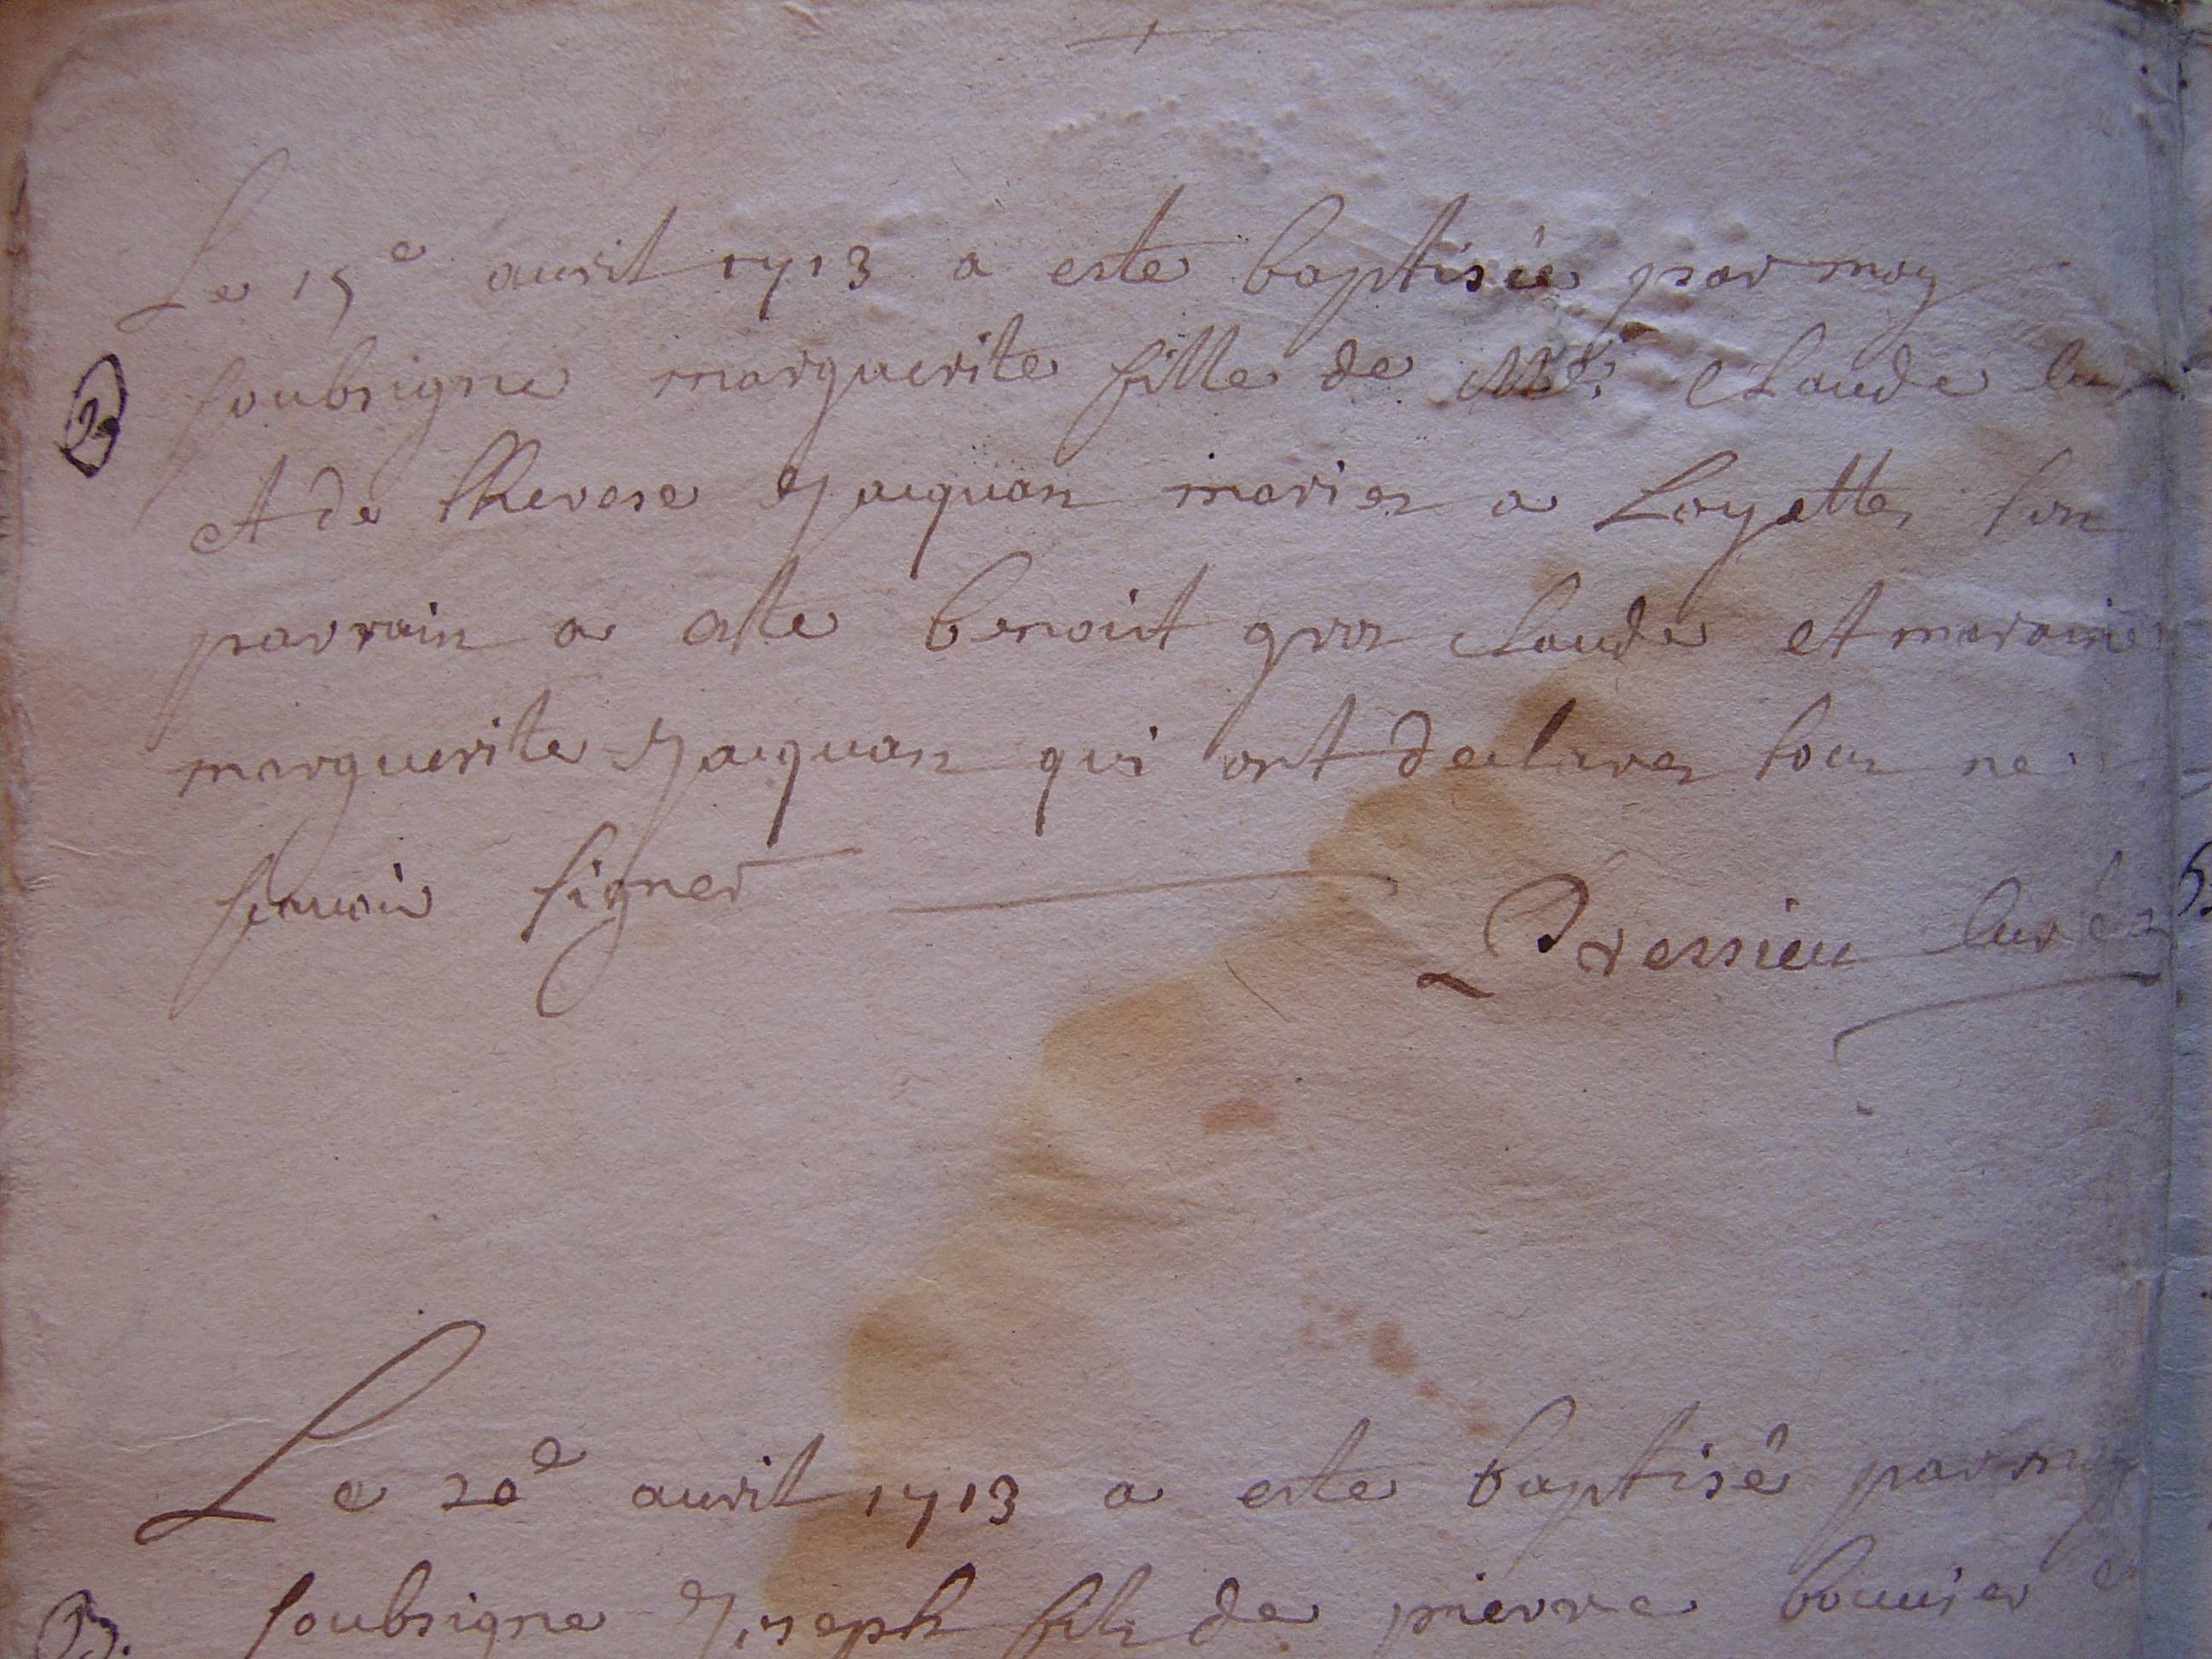 Le 15e auril 1713 a este baptisée par moy
2
soubsigne marguerite fille de Mre Claude
et de therese Jacquan maries a Loyettes son
parrain a este benoist gros claude et maraine
marguerite Jacquan qui ont declares tous ne
scauoir signer
Dressieu curé
Le 20e auril 1713 a este baptisé par moy
3.
soubsigne Joseph fils de pierre bouuier